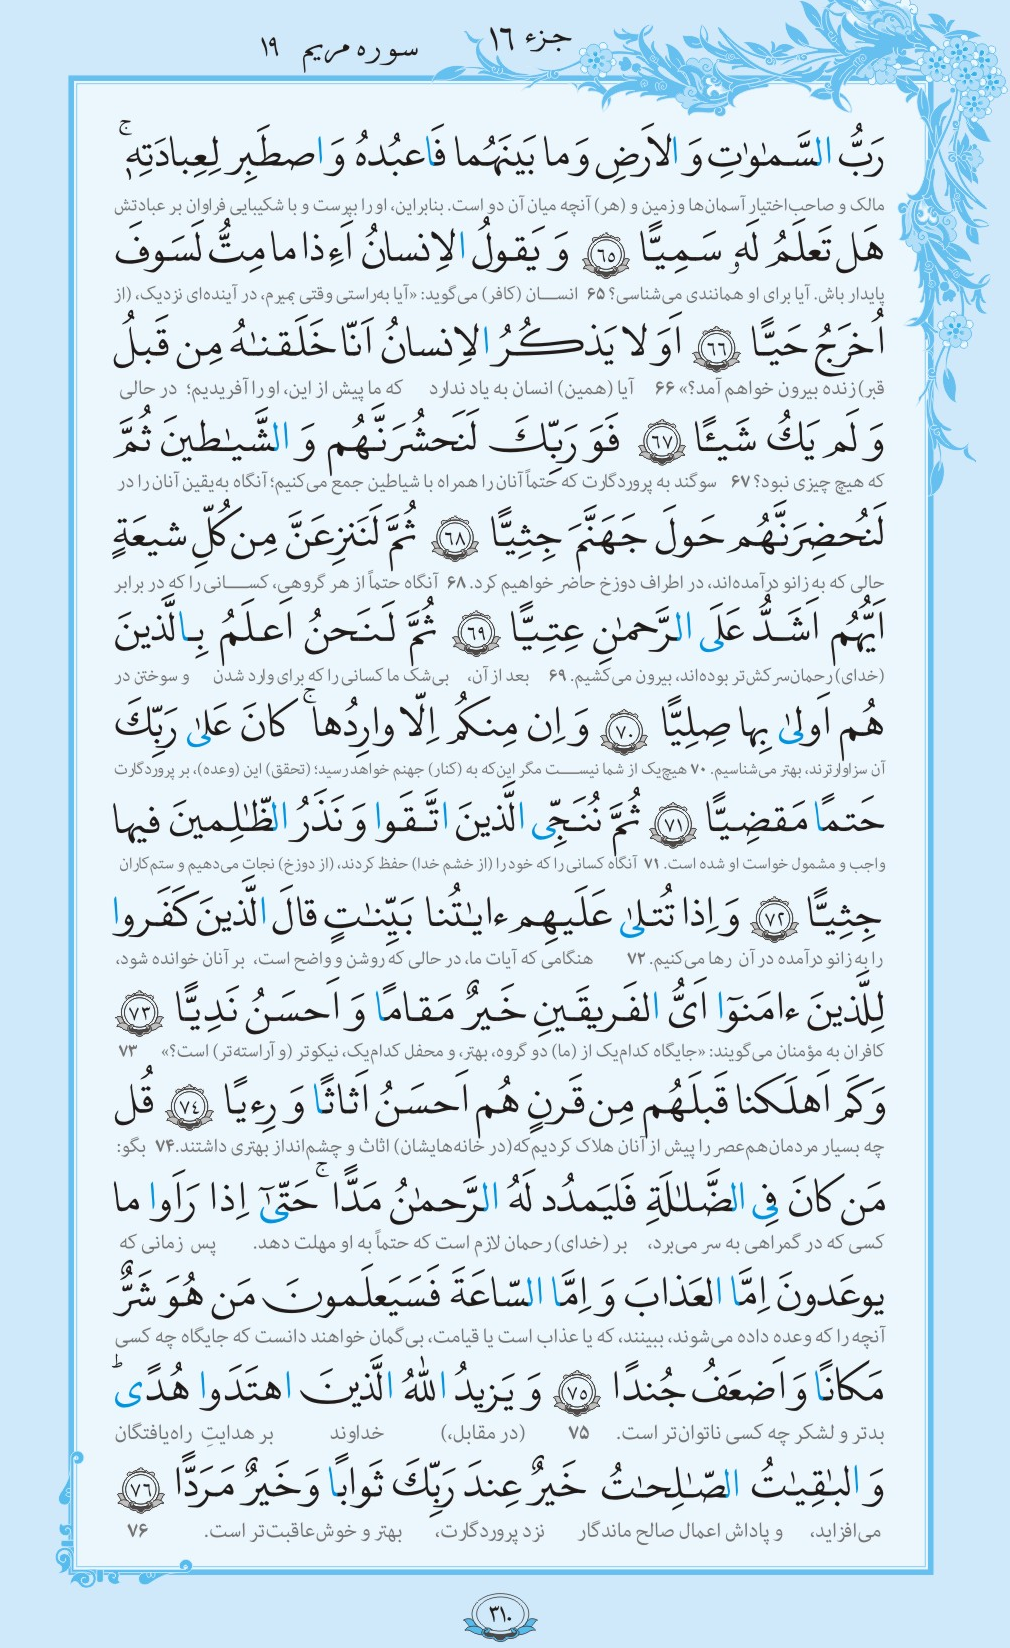 جزء ۱۶
سوره مریم ۱۹
رَبُّ السَّمٰوٰتِ وَ الاَرضِ وَ ما بَینَهُما فَاعبُدهُ وَ اصطَبِر لِعِبادَتِهٖ ۚ
مالک و صاحب‌اختیار آسمان‌ها و زمین و (هر) آنچه میان آن دو است. بنابراین، او را بپرست و با شکیبایی فراوان بر عبادتش
هَل تَعلَمُ لَهٗ سَمِیًّا ﴿٦٥﴾ وَ یَقولُ الاِنسانُ اَءِذا ما مِتُّ لَسَوفَ
پایدار باش. آیا برای او همانندی می‌شناسی؟ ۶۵ انسان (کافر) می‌گوید: «آیا به‌راستی وقتی بمیرم، در آینده‌ای نزدیک، (از
اُخرَجُ حَیًّا ﴿٦٦﴾ اَوَ لا یَذکُرُ الاِنسانُ اَنّا خَلَقنٰهُ مِن قَبلُ
قبر) زنده بیرون خواهم آمد؟» ۶۶ آیا (همین) انسان به یاد ندارد که ما پیش از این، او را آفریدیم؛ در حالی
وَ لَم یَکُ شَیئًا ﴿٦٧﴾ فَوَ رَبِّکَ لَنَحشُرَنَّهُم وَ الشَّیٰطینَ ثُمَّ
که هیچ چیزی نبود؟ ۶۷ سوگند به پروردگارت که حتماً آنان را همراه با شیاطین جمع می‌کنیم؛ آنگاه به‌یقین آنان را در
لَنُحضِرَنَّهُم حَولَ جَهَنَّمَ جِثِیًّا ﴿٦٨﴾ ثُمَّ لَنَنزِعَنَّ مِن کُلِّ شیعَةٍ
حالی که به زانو درآمده‌اند، در اطراف دوزخ حاضر خواهیم کرد. ۶۸ آنگاه حتماً از هر گروهی، کسانی را که در برابر
اَیُّهُم اَشَدُّ عَلَی الرَّحمٰنِ عِتِیًّا ﴿٦٩﴾ ثُمَّ لَنَحنُ اَعلَمُ بِالَّذینَ
(خدای) رحمان سرکش‌تر بوده‌اند، بیرون می‌کشیم. ۶۹ بعد از آن، بی‌شک ما کسانی را که برای وارد شدن و سوختن در
هُم اَولیٰ بِها صِلِیًّا ﴿٧٠﴾ وَ اِن مِنکُم اِلّا وارِدُها ۚ کانَ عَلیٰ رَبِّکَ
آن سزاوارترند، بهتر می‌شناسیم. ۷۰ هیچ‌یک از شما نیست مگر این‌که به (کنار) جهنم خواهد رسید؛ (تحقق) این (وعده)، بر پروردگارت
حَتمًا مَقضِیًّا ﴿٧١﴾ ثُمَّ نُنَجِّی الَّذینَ اتَّقَوا وَ نَذَرُ الظّٰلِمینَ فیها
واجب و مشمول خواست او شده است. ۷۱ آنگاه کسانی را که خود را (از خشم خدا) حفظ کردند، (از دوزخ) نجات می‌دهیم و ستم‌کاران
جِثِیًّا ﴿٧٢﴾ وَ اِذا تُتلیٰ عَلَیهِم ءایٰتُنا بَیِّنٰتٍ قالَ الَّذینَ کَفَروا
را به زانو درآمده در آن رها می‌کنیم. ۷۲ هنگامی که آیات ما، در حالی که روشن و واضح است، بر آنان خوانده شود،
لِلَّذینَ ءامَنوٓا اَیُّ الفَریقَینِ خَیرٌ مَقامًا وَ اَحسَنُ نَدِیًّا ﴿٧٣﴾
کافران به مؤمنان می‌گویند: «جایگاه کدام‌یک از (ما) دو گروه، بهتر، و محفل کدام‌یک، نیکوتر (و آراسته‌تر) است؟» ۷۳
وَ کَم اَهلَکنا قَبلَهُم مِن قَرنٍ هُم اَحسَنُ اَثاثًا وَ رِءیًا ﴿٧٤﴾ قُل
چه بسیار مردمان هم‌عصر را پیش از آنان هلاک کردیم که (در خانه‌هایشان) اثاث و چشم‌انداز بهتری داشتند. ۷۴ بگو:
مَن کانَ فِی الضَّلٰلَةِ فَلیَمدُد لَهُ الرَّحمٰنُ مَدًّا ۚ حَتّیٰٓ اِذا رَاَوا ما
کسی که در گمراهی به سر می‌برد، بر (خدای) رحمان لازم است که حتماً به او مهلت دهد. پس زمانی که
یوعَدونَ اِمَّا العَذابَ وَ اِمَّا السّاعَةَ فَسَیَعلَمونَ مَن هُوَ شَرٌّ
آنچه را که وعده داده می‌شوند، ببینند، که یا عذاب است یا قیامت، بی‌گمان خواهند دانست که جایگاه چه کسی
مَکانًا وَ اَضعَفُ جُندًا ﴿٧٥﴾ وَ یَزیدُ اللّٰهُ الَّذینَ اهتَدَوا هُدًی ۗ
بدتر و لشکر چه کسی ناتوان‌تر است. ۷۵ (در مقابل،) خداوند بر هدایتِ راه‌یافتگان
وَ البٰقِیٰتُ الصّٰلِحٰتُ خَیرٌ عِندَ رَبِّکَ ثَوابًا وَ خَیرٌ مَرَدًّا ﴿٧٦﴾
می‌افزاید، و پاداش اعمال صالح ماندگار نزد پروردگارت، بهتر و خوش‌عاقبت‌تر است. ۷۶
۳۱۰